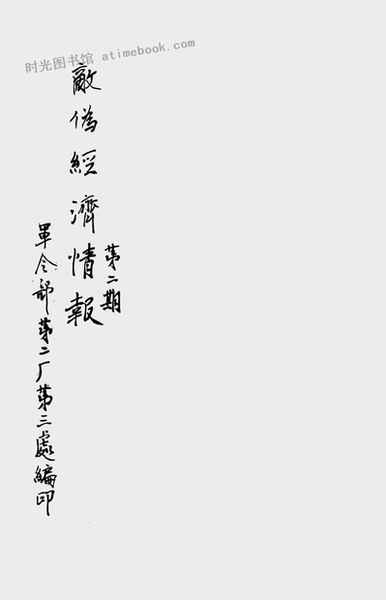 时光图书馆 atimebook.com
敵偽經濟情報
第二期
軍令部第二厂第三處編印